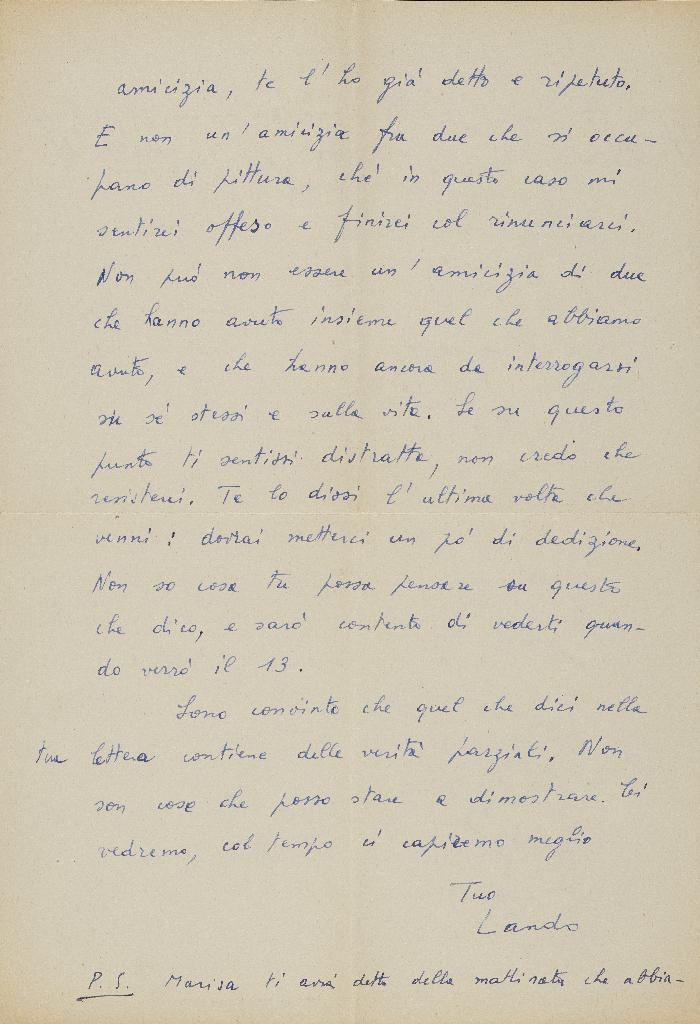 amicizia, te l'ho già detto e ripetuto.
E non un'amicizia fra due che si occu-
pano di pittura, ché in questo caso mi
sentirei offeso e finirei col rinunciarci.
Non può non essere un'amicizia di due
che hanno avuto insieme quel che abbiamo
avuto, e che hanno ancora da interrogarsi
su sé stessi e sulla vita. Se su questo
punto ti sentissi distratta, non credo che
resisterei. Te lo dissi l'ultima volta che
venni: dovrai metterci un pó di dedizione.
Non so cosa tu possa pensare su questo
che dico, e sarò contento di vederti quan-
do verrò il 13.
Sono convinto che quel che dici nella
tua lettera contiene delle verità parziali. Non
son cose che posso stare a dimostrare. Ci
vedremo, col tempo ci capiremo meglio
Tuo
Lando
P. S. Marisa ti avrà detto della mattinata che abbia-